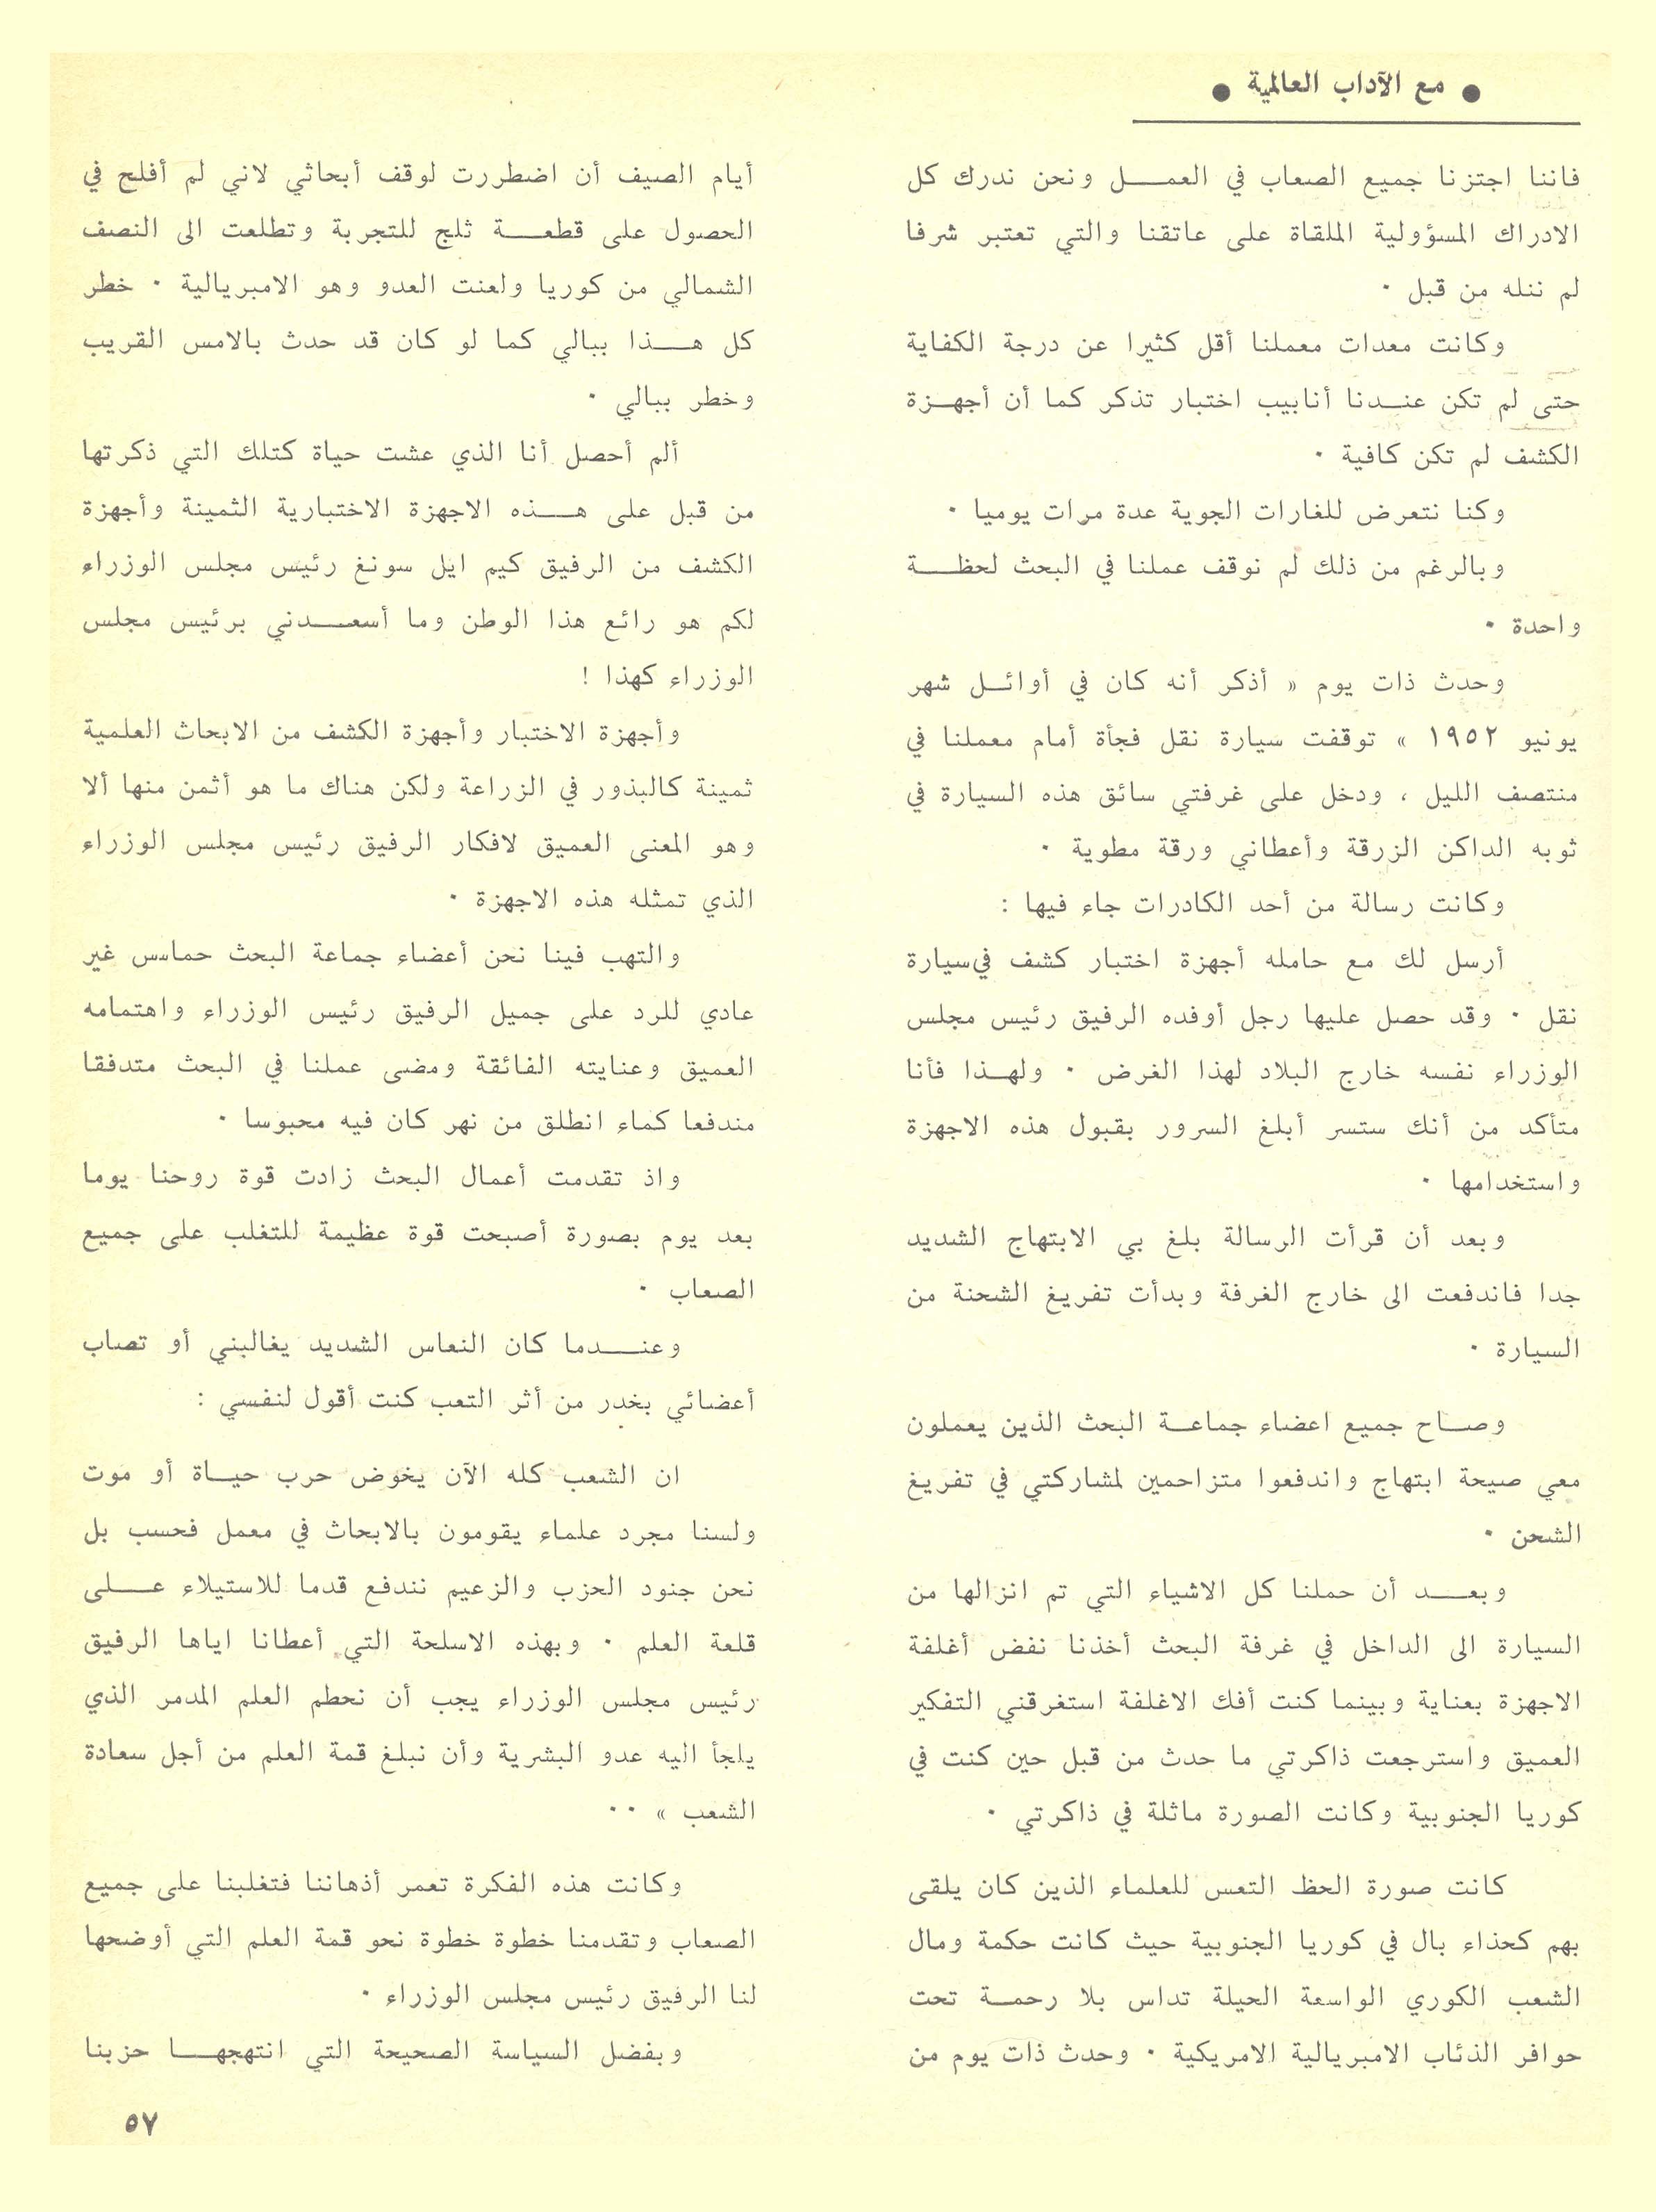 ● مع الآداب العالمية ●
فاننا اجتزنا جميع الصعاب في العمــل ونحن ندرك كل
الادراك المسؤولية الملقاة على عاتقنا والتي تعتبر شرفا
لم ننله من قبل ٠
وكانت معدات معملنا أقل كثيرا عن درجة الكفاية
حتى لم تكن عنــدنا أنابيب اختبار تذكر كما أن أجهــزة
الكشف لم تكن كافية ٠
وكنا نتعرض للغارات الجوية عدة مرات يوميا ٠
وبالرغم من ذلك لم نوقف عملنا في البحث لحظــة
واحدة ٠
وحدث ذات يوم « أذكر أنه كان في أوائــل شهر
يونيو ١٩٥٢ » توقفت سيارة نقل فجأة أمام معملنا في
منتصف الليل ، ودخل على غرفتي سائق هذه السيارة في
ثوبه الداكن الزرقة وأعطاني ورقة مطوية ٠
وكانت رسالة من أحد الكادرات جاء فيها :
أرسل لك مع حامله أجهزة اختبار كشف في سيارة
نقل ٠ وقد حصل عليها رجل أوفده الرفيق رئيس مجلس
الوزراء نفسه خارج البلاد لهذا الغرض ٠ ولهــذا فأنا
متأكد من أنك ستسر أبلغ السرور بقبول هذه الاجهزة
واستخدامها ٠
وبعد أن قرأت الرسالة بلغ بي الابتهاج الشديد
جدا فاندفعت الى خارج الغرفة وبدأت تفريغ الشحنة من
السيارة ٠
وصــاح جميع اعضاء جماعــة البحث الذين يعملون
معي صيحة ابتهاج واندفعوا متزاحمين لمشاركتي في تفريغ
الشحن ٠
وبعــد أن حملنا كل الاشياء التي تم انزالها من
السيارة الى الداخل في غرفة البحث أخذنا نفض أغلفة
الاجهزة بعناية وبينما كنت أفك الاغلفة استغرقني التفكير
العميق واسترجعت ذاكرتي ما حدث من قبل حين كنت في
كوريا الجنوبية وكانت الصورة ماثلة في ذاكرتي ٠
كانت صورة الحظ التعس للعلماء الذين كان يلقى
بهم كحذاء بال في كوريا الجنوبية حيث كانت حكمة ومال
الشعب الكوري الواسعة الحيلة تداس بلا رحمــة تحت
حوافر الذئاب الامبريالية الامريكية ٠ وحدث ذات يوم من
أيام الصيف أن اضطررت لوقف أبحاثي لاني لم أفلح في
الحصول على قطعــة ثلج للتجربة وتطلعت الى النصف
الشمالي من كوريا ولعنت العدو وهو الامبريالية ٠ خطر
كل هــذا ببالي كما لو كان قد حدث بالامس القريب
وخطر ببالي ٠
ألم أحصل أنا الذي عشت حياة كتلك التي ذكرتها
من قبل على هــذه الاجهزة الاختبارية الثمينة وأجهزة
الكشف من الرفيق كيم ايل سونغ رئيس مجلس الوزراء
لكم هو رائع هذا الوطن وما أسعــدني برئيس مجلس
الوزراء كهذا !
وأجهزة الاختبار وأجهزة الكشف من الابحاث العلمية
ثمينة كالبذور في الزراعة ولكن هناك ما هو أثمن منها ألا
وهو المعنى العميق لافكار الرفيق رئيس مجلس الوزراء
الذي تمثله هذه الاجهزة ٠
والتهب فينا نحن أعضاء جماعة البحث حماس غير
عادي للرد على جميل الرفيق رئيس الوزراء واهتمامه
العميق وعنايته الفائقة ومضى عملنا في البحث متدفقا
مندفعا كماء انطلق من نهر كان فيه محبوسا ٠
واذ تقدمت أعمال البحث زادت قوة روحنا يوما
بعد يوم بصورة أصبحت قوة عظيمة للتغلب على جميع
الصعاب ٠
وعنــدما كان النعاس الشديد يغالبني أو تصاب
أعضائي بخدر من أثر التعب كنت أقول لنفسي :
ان الشعب كله الآن يخوض حرب حيــاة أو موت
ولسنا مجرد علماء يقومون بالابحاث في معمل فحسب بل
نحن جنود الحزب والزعيم نندفع قدما للاستيلاء عــلى
قلعة العلم ٠ وبهذه الاسلحة التي أعطانا اياها الرفيق
رئيس مجلس الوزراء يجب أن نحطم العلم المدمر الذي
يلجأ اليه عدو البشرية وأن نبلغ قمة العلم من أجل سعادة
الشعب » ٠٠
وكانت هذه الفكرة تعمر أذهاننا فتغلبنا على جميع
الصعاب وتقدمنا خطوة خطوة نحو قمة العلم التي أوضحها
لنا الرفيق رئيس مجلس الوزراء ٠
وبفضل السياسة الصحيحة التي انتهجهــا حزبنا
٥٧